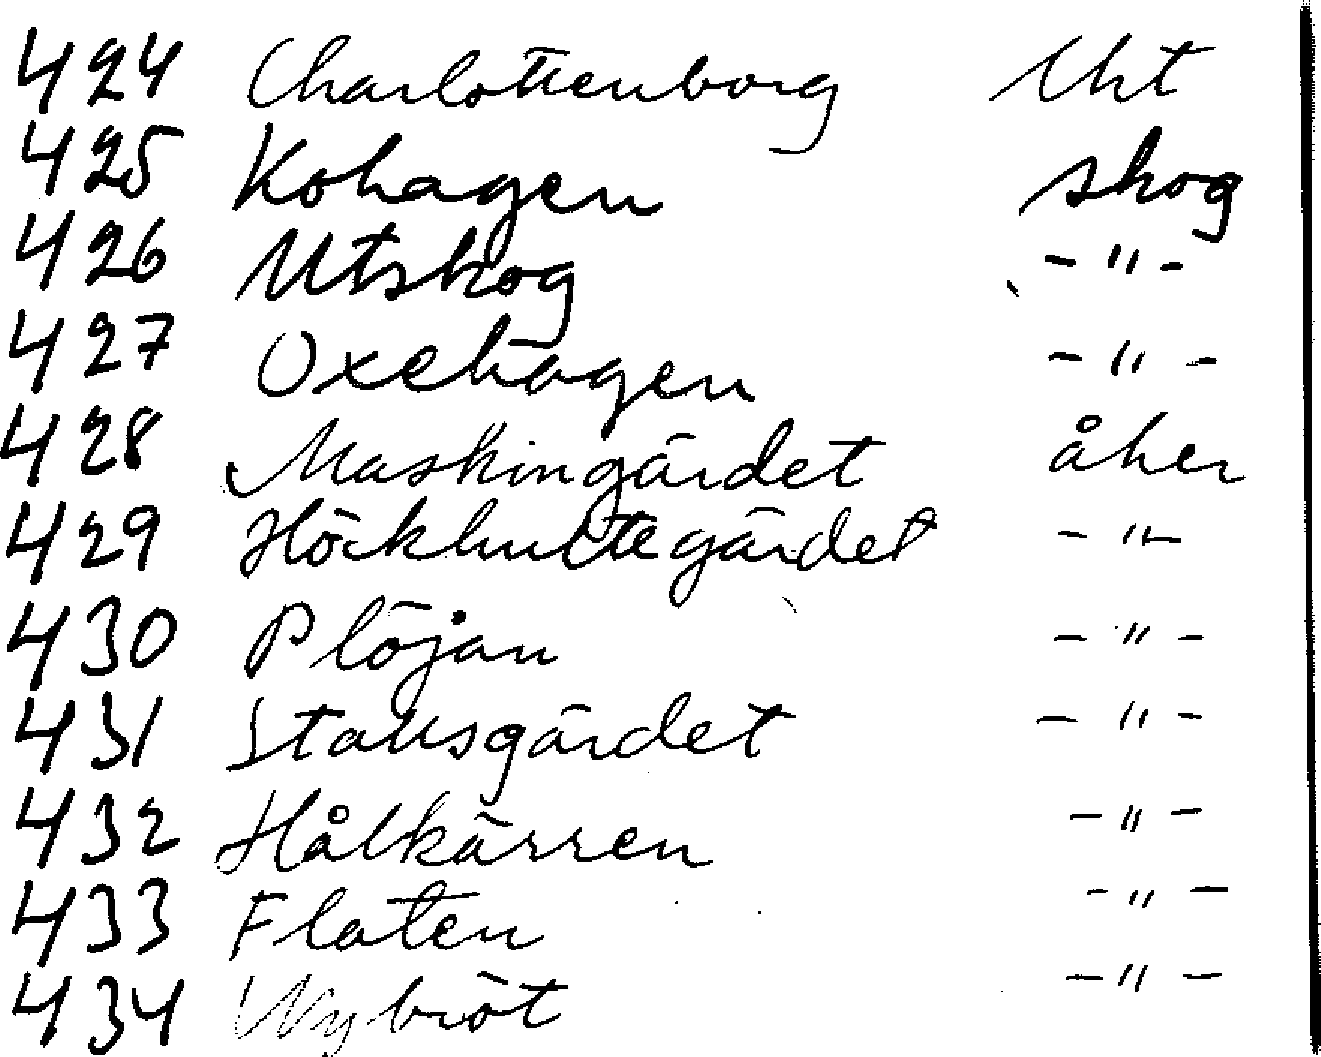 424 Charlottenborg lht
425 Kohagen skog
426 Utskog - " -
427 Oxehagen - " -
428 Maskingärdet åker
429 Höckhultegärdet - " -
430 Plöjan - " -
431 Stallsgärdet - " -
432 Hålkärren - " -
433 Flaten - " -
434 Nybröt - " -